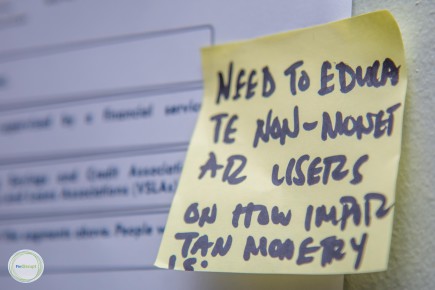 supervised by a financial servic
Savings and Credit Associatio
and Loans Associations (VSLAs)
the segments above. People w
NEED TO EDUCA
TE NON-MONET
AR USERS
ON HOW IMPOR
TAN MONETRY
IS: